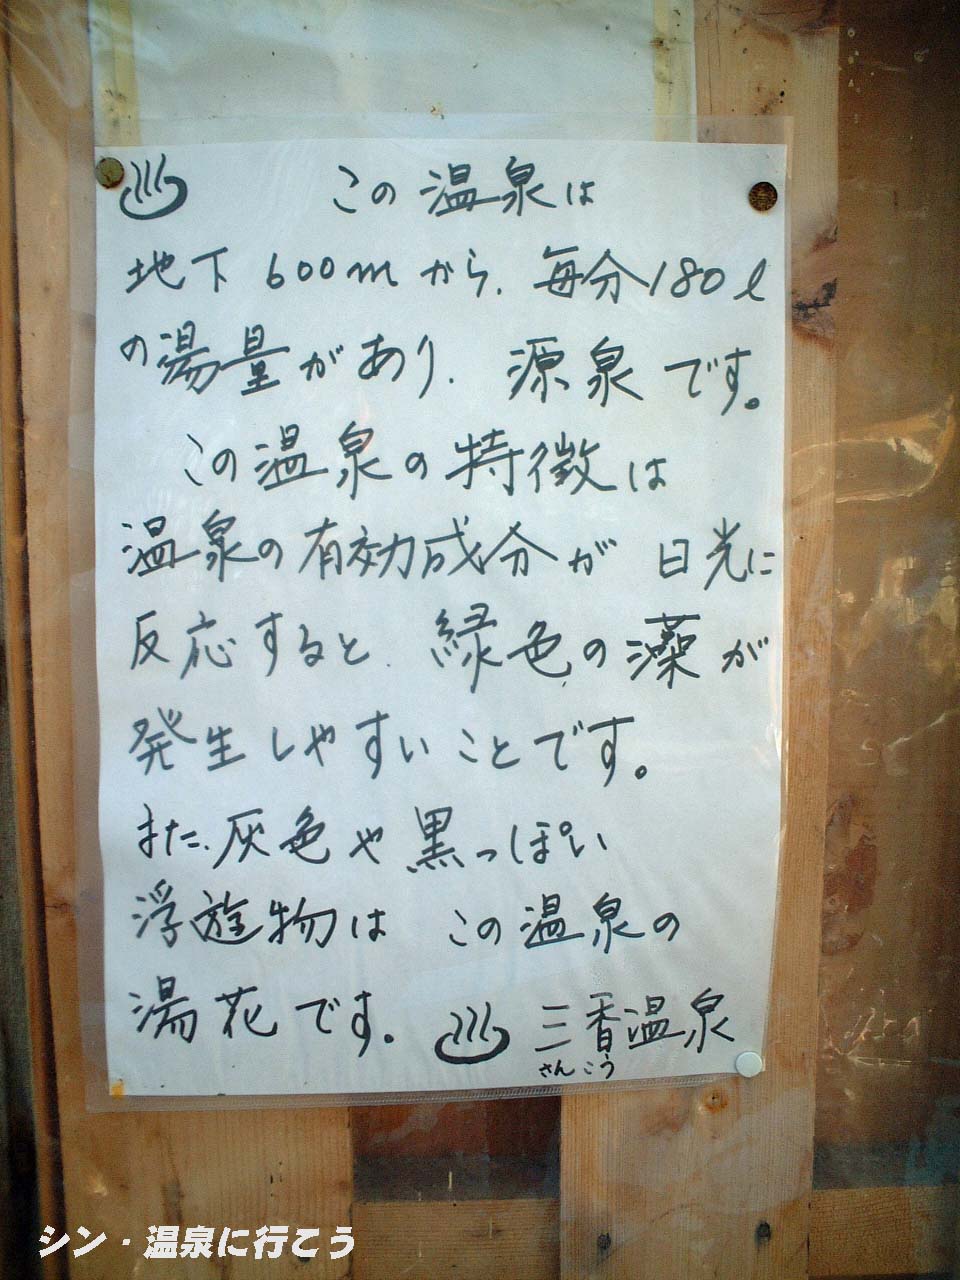 ♨ この温泉は
地下600mから、毎分180ℓ
の湯量があり、源泉です。
この温泉の特徴は
温泉の有効成分が 日光に
反応すると、緑色の藻が
発生しやすいことです。
また、灰色や黒っぽい
浮遊物は この温泉の
湯花です。 ♨ 三香温泉
さんこう
シン・温泉に行こう